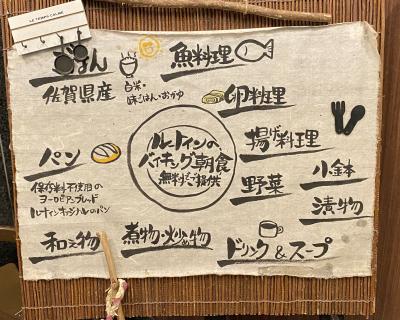 LE TEMPS CALME
ごはん
佐賀県産
白米・
味ごはん・おかゆ
魚料理
卵料理
揚げ料理
ルートインの
バイキング朝食
無料でご提供
パン
保存料不使用の
ヨーロピアンブレッド
ルートインオリジナルのパン
野菜
小鉢
漬物
和え物
煮物・炒め物
ドリンク&スープ